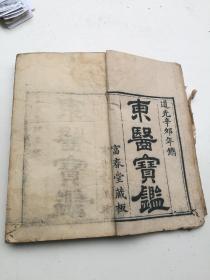 道光辛卯年鐫
東醫寶鑑
富春堂藏板